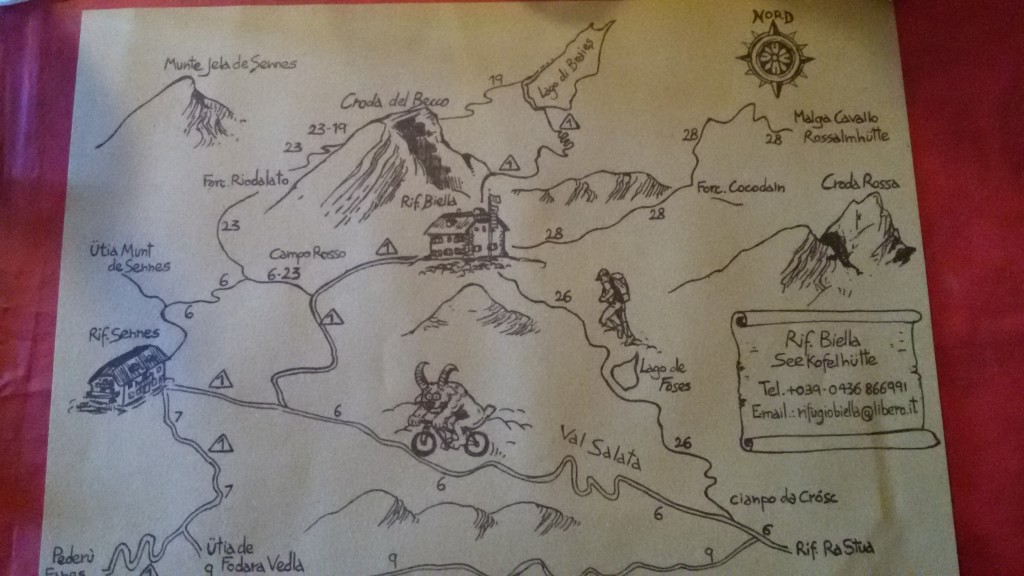 NORD
Munte Jela de Sennes
Lago di Braies
19
Croda del Becco
23-19
23
1
Malga Cavallo
Rossalmhütte
28
28
1
Forc. Riodalato
Rif. Biella
Forc. Cocodain
Croda Rossa
28
28
23
Ütia Munt
de Sennes
Campo Rosso
1
6-23
6
6
26
1
Rif. Sennes
Rif. Biella
Seekofelhütte
Tel. +039-0436 866991
Email.: rifugiobiella@libero.it
Lago de
Foses
1
7
6
Val Salata
26
1
6
7
6
cianpo da Crósc
6
Rif. Ra Stua
Pederü
1
Ütia de
Fodara Vedla
9
9
9